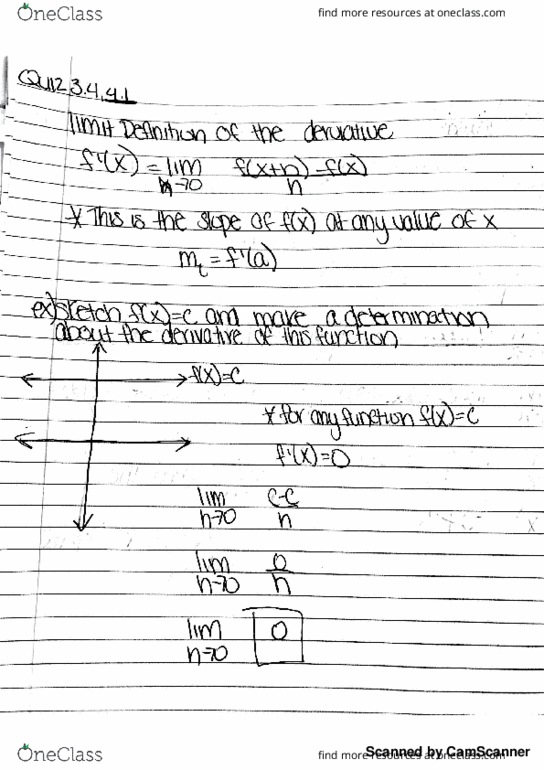 OneClass
find more resources at oneclass.com
Quiz 3.4, 4.1
limit Definition of the derivative
f'(x) = lim f(x+h) - f(x)
h→0 h
* This is the slope of f(x) at any value of x
m_t = f'(a)
ex) sketch f(x)=c and make a determination
about the derivative of this function
f(x)=c
* for any function f(x)=c
f'(x)=0
lim c-c
h→0 h
lim 0
h→0 h
lim 0
h→0
OneClass
find more resources at oneclass.com
Scanned by CamScanner